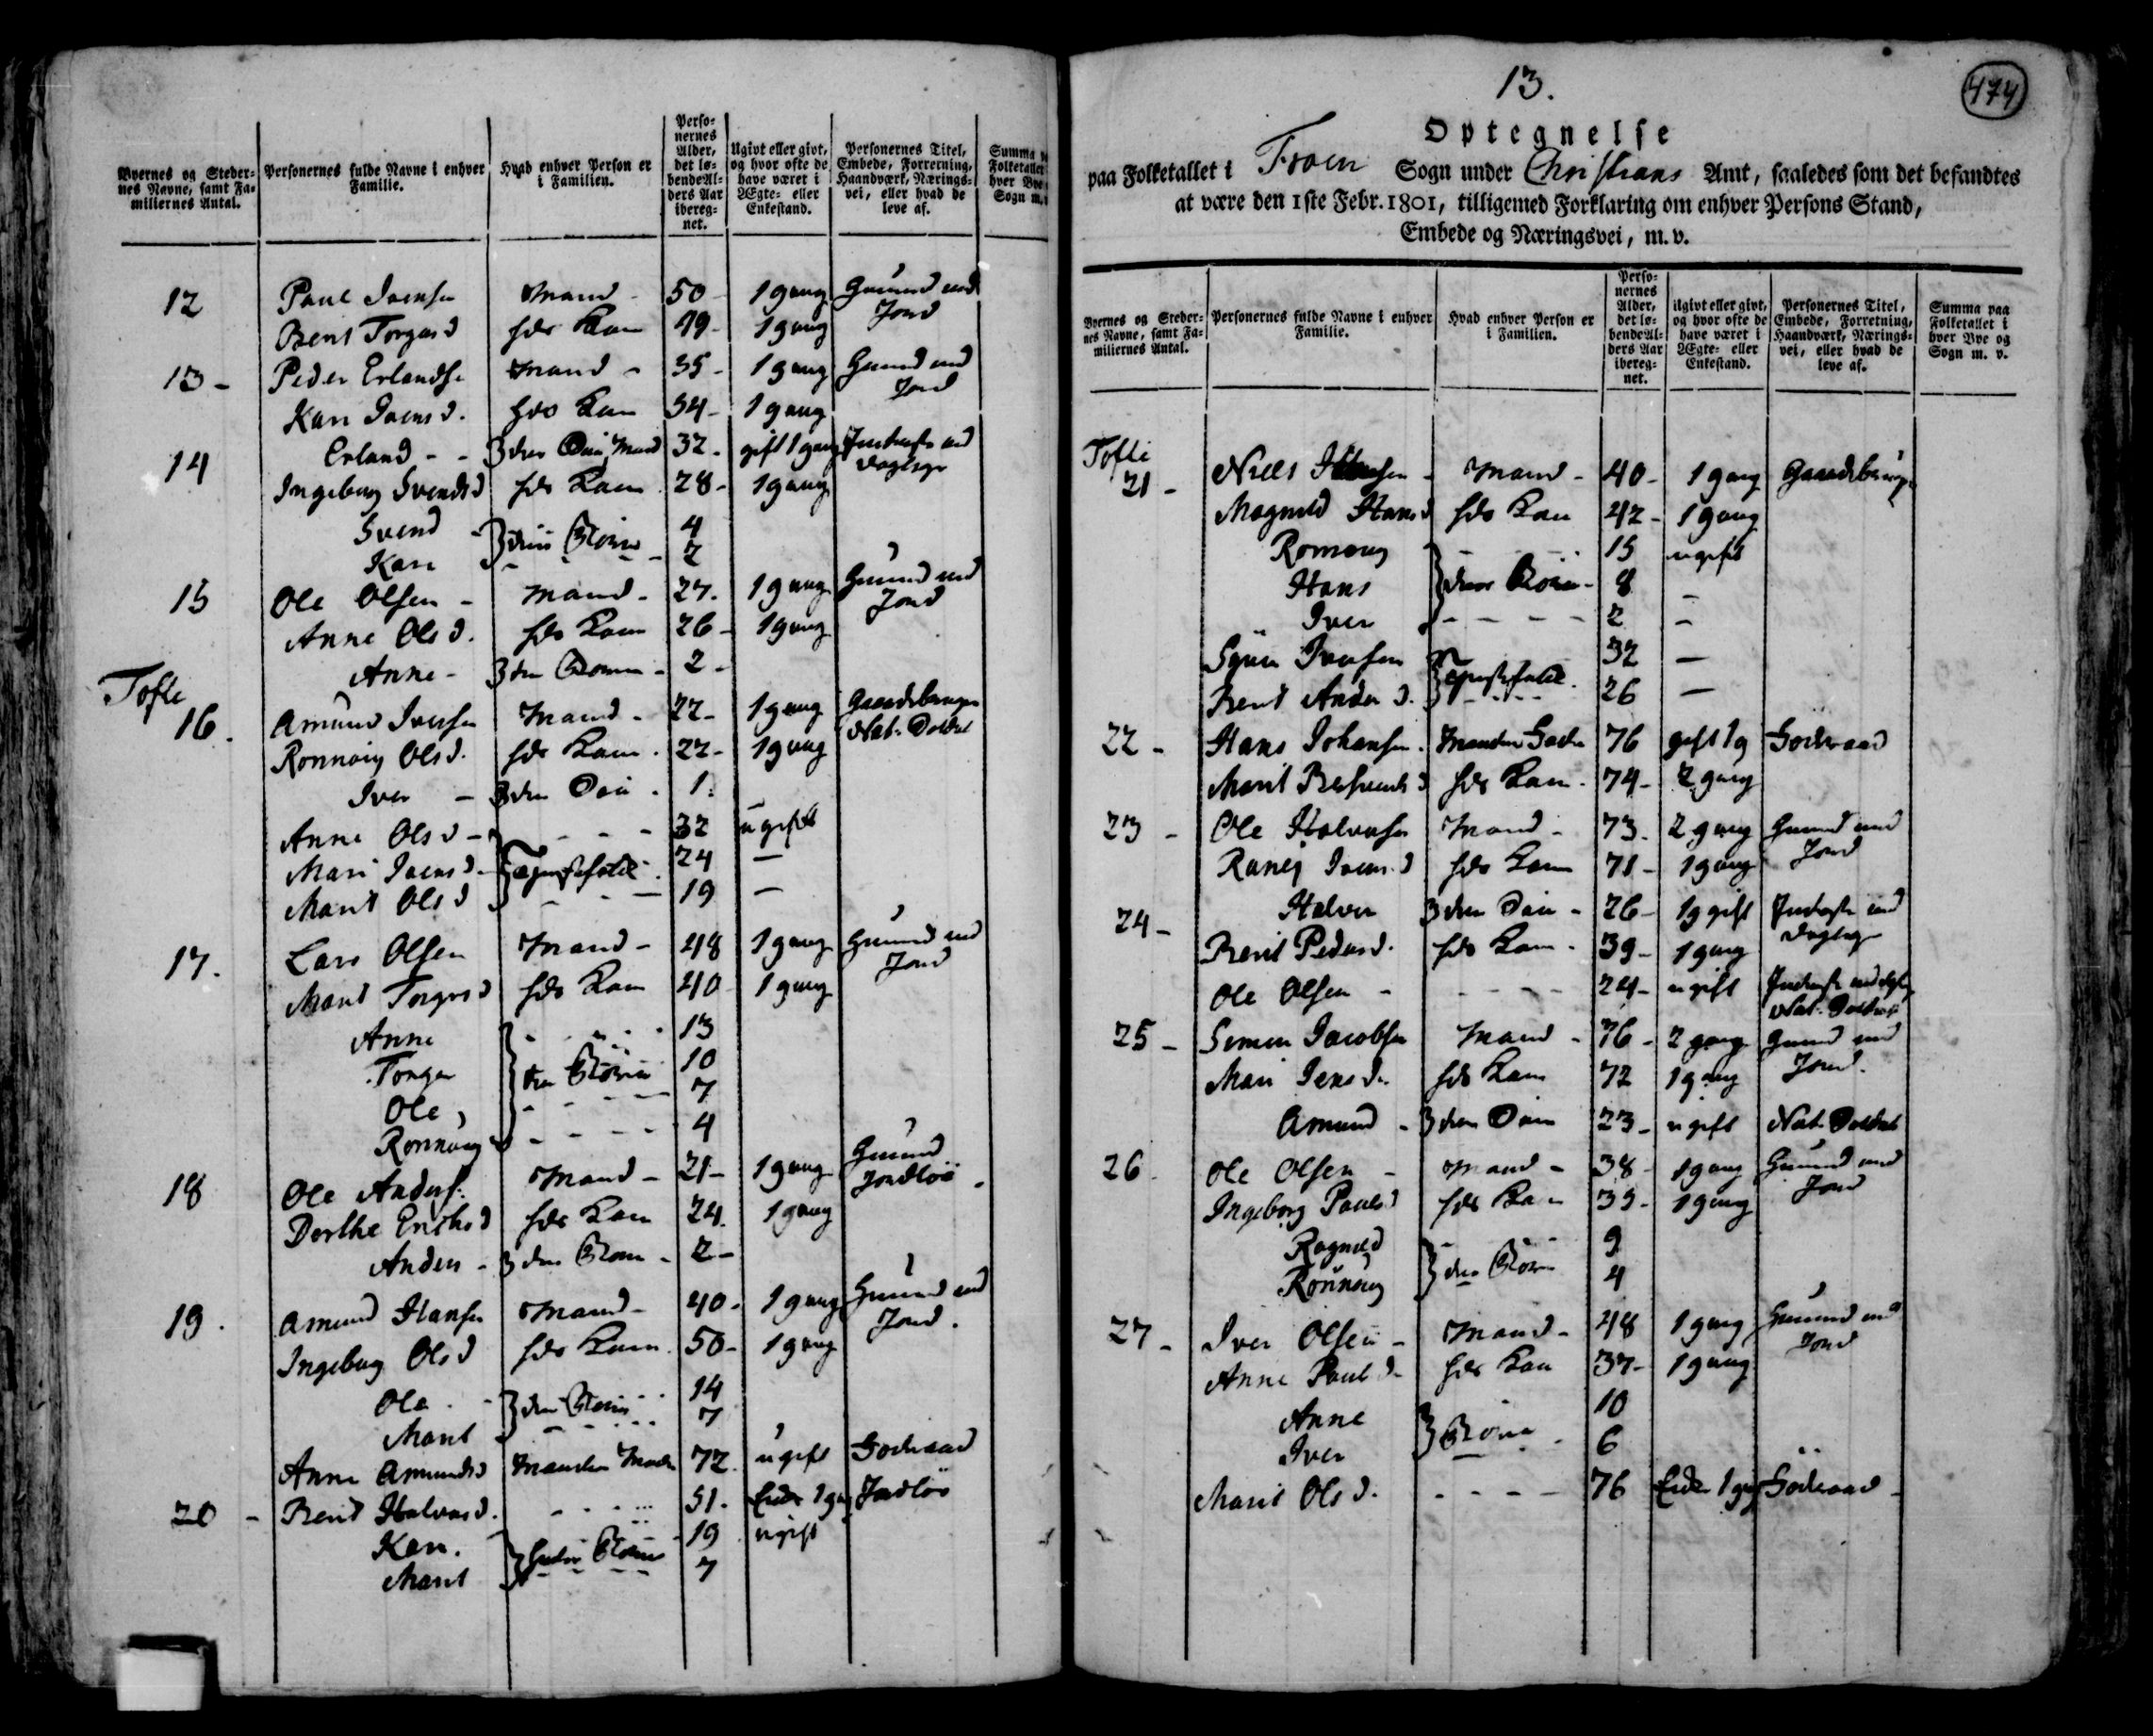 Byernes og Steder-
nes Navne, samt Fa-
miliernes Antal.
Personernes fulde Navne i enhver
Familie.
Hvad enhver Person er
i Familien.
Perso-
nernes
Alder,
det lø-
bende Al-
ders Aar
ibereg-
net.
Ugivt eller givt,
og hvor ofte de
have været i
Ægte- eller
Enkestand.
Personernes Titel,
Embede, Forretning,
Haandværk, Nærings-
vei, eller hvad de
leve af.
Summa
Folketallet
hver Bye
Sogn m.
12 Paul Joensen Mand - 50 - 1 gang Huusmd med
Jord
Berit Torgersd hds Kone 49 - 1 gang
13 - Peder Erlandse Mand - 35 - 1 gang Huusmd med
Jord
Kari Joensd. hds Kone 34 - 1 gang
14 Erland - - deres Søn, Mand 32 - gift 1 gang Inderste ved
Ingeborg Svendsd hds Kone 28 - 1 gang
Svend deres Børn 4
Kari 2
15 Ole Olsen - Mand - 27. 1 gang Huusmd med
Jord
Anne Olsd. hds Kone 26 - 1 gang
Anne - deres Barn - 2 -
Tofte
16. Amund Iversen Mand - 22 - 1 gang Gaardbruger
Nat. Soldat
Ronnøug Olsd. hds Kone. 22 - 1 gang
Iver - deres Søn. 1.
Anne Olsd - - - - 32 ugift
Mari Joensd. - Tjenistefolk. 24 —
Marit Olsd - - - 19 —
17. Lars Olsen Mand - 48 1 gang Huusmd med
Jord
Marit Torgersd hds Kone 40 1 gang
Anne 13
Torger deres Børn 10
Ole 7
Ronnøug 4
18 Ole Anders. Mand - 21 - 1 gang Huusmd
Jordløs
Dorthe Erichsd hds Kone 24. 1 gang
Anders - deres Barn - 2 -
19. Amund Hansen Mand - 40 - 1 gang Huusmd med
Jord.
Ingeborg Olsd hds Kone. 50 - 1 gang
Ole - deres Børn 14
Marit 7
Anne Amundsd Mandens Moder 72. ugift Føderaad
20 - Berit Halvorsd. 51. Enke 1 gang Jordløs
Kari. 19 ugift
Marit hendes Børn 7
13.
474
Optegnelse
paa Folketallet i Froen Sogn under Christians Amt, saaledes som det befandtes
at være den 1ste Febr. 1801, tilligemed Forklaring om enhver Persons Stand,
Embede og Næringsvei, m. v.
Byernes og Steder-
nes Navne, samt Fa-
miliernes Antal.
Personernes fulde Navne i enhver
Familie.
Hvad enhver Person er
i Familien.
Perso-
nernes
Alder,
det lø-
bende Al-
ders Aar
ibereg-
net.
Ugivt eller givt,
og hvor ofte de
have været i
Ægte- eller
Enkestand.
Personernes Titel,
Embede, Forretning,
Haandværk, Nærings-
vei, eller hvad de
leve af.
Summa paa
Folketallet i
hver Bye og
Sogn m. v.
Tofte
21 - Niels Hansen - Mand - 40 - 1 gang Gaardbruger
Magnild Hansd hds Kone 42 - 1 gang
Ronnoug 15 ugift
Hans deres Børn - 8 —
Iver 2 —
Iversen 32 —
Berit Andersd. Tjenistefolk. 26 —
22 - Hans Johansen. Mandens Fader 76 gift 1 g Føderaad
Marit hds Kone. 74 - 2 gang
23 - Ole Halvorsen Mand - 73. 2 gang Huusmd med
Jord
Ranej Joensd hds Kone 71 - 1 gang
24 - Halvor deres Søn - 26 - 1 g gift Inderste ved
Berit Pedersd. hds Kone. 39 - 1 gang
Ole Olsen - - - - - 24 - ugift Inderste
Nat. Soldat
25 - Simen Jacobsen Mand - 76 - 2 gang Huusmd med
Jord.
Mari Jensd. hds Kone 72 1 gang
Amund - deres Søn 23 - ugift Nat. Soldat
26 Ole Olsen - Mand - 38 - 1 gang Huusmd med
Jord
Ingeborg Paulsd hds Kone 39 - 1 gang
Ragnild 9
Ronnøug deres Børn 4
27 - Iver Olsen - Mand - 48 1 gang Huusmd med
Jord
Anne Paulsd - hds Kone 37 - 1 gang
Anne 10
Iver Børn - 6
Marit Olsd. - - - - 76 Enke 1 gang Føderaad -